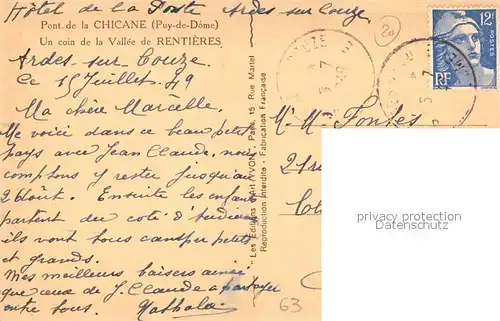 Hôtel de la Poste Ardes sur Couze
Pont de la CHICANE (Puy-de-Dôme)
Un coin de la Vallée de RENTIÈRES
Ardes sur Couze
Ce 15 Juillet 49
Ma chère Marcelle.
Me voici dans ce beau petit
pays avec Jean Claude, nous
comptons y rester jusqu'au
2 Août. Ensuite les enfants
partent du coté d'
ils vont tous petits
et grands.
Mes meilleurs baisers ainsi
que ceux de J. Claude a partager
entre tous. Nathalie
Les Editions d'Art YVON Paris 15 Rue Martel
Reproduction Interdite - Fabrication Française
12F
POSTES
RF
M. Mme Fontes
21
privacy protection
PROTECTION DONNÉES
63